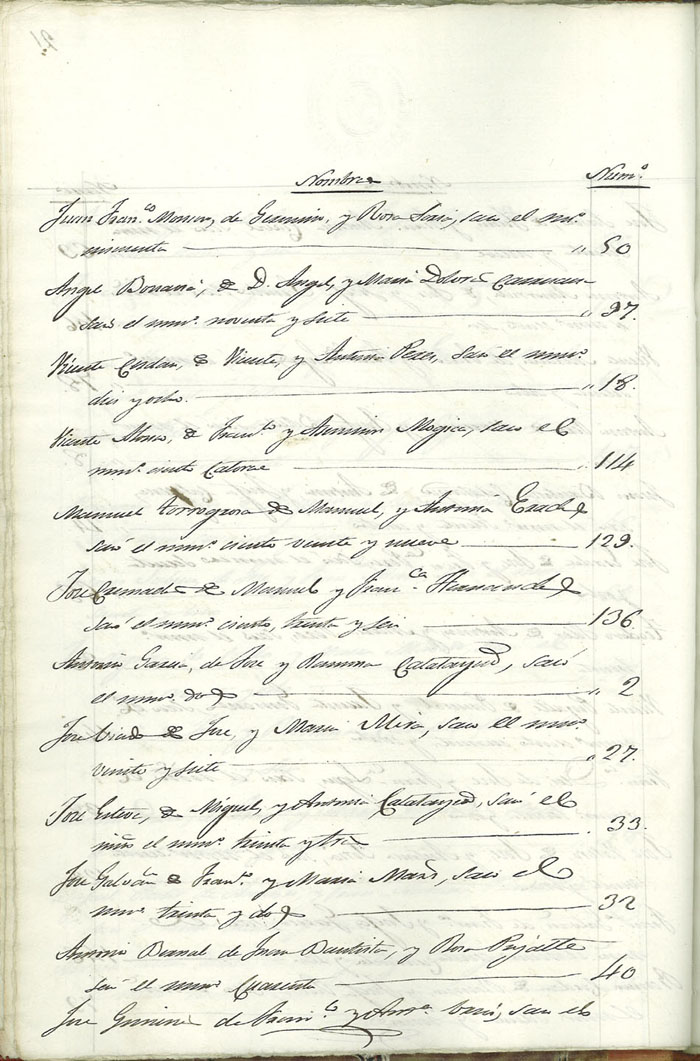 Nombres Num.º
Juan Fran.co de y Rosa saco el num.º
cincuenta „ 50
Angel de D. Angel, y Maria Dolores
saco el num.º noventa y siete „ 97.
Vicente Cerdan, de Vicente, y Antonia Perez, saco el num.º
diez y ocho. „ 18.
Vicente Alonso, de Fran.co y Asuncion Mogica, saco el
num.º ciento Catorce 114
Manuel torregrosa de Manuel, y Antonia
sacó el num.º ciento veinte y nueve 129.
Jose Cremades de Manuel y Fran.ca Hernandez
sacó el num.º ciento, treinta y seis 136
Antonio Garcia, de Jose y Ramona Calatayud, sacó
el num.º dos „ 2
Jose de Jose, y Maria Mira, saco el num.º
veinte y siete „ 27.
José Esteve, de Miguel, y Antonia Calatayud, sacó el
el num.º treinta y tres 33.
Jose Galvañ de Fran.co y Maria saco el
num.º treinta y dos 32
Antonio Bernal de Juan Bautista, y Rosa
sacó el num.º Cuarenta 40
Jose de y saco el